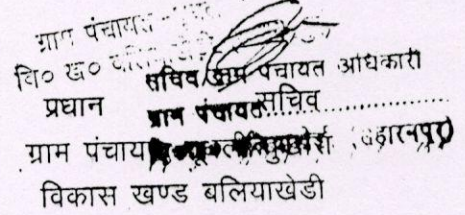 ग्राम पंचायत
वि० ख०
सचिव/ग्राम पंचायत अधिकारी
प्रधान ग्राम पंचायत सचिव....................
ग्राम पंचायत (सहारनपुर)
विकास खण्ड बलियाखेडी